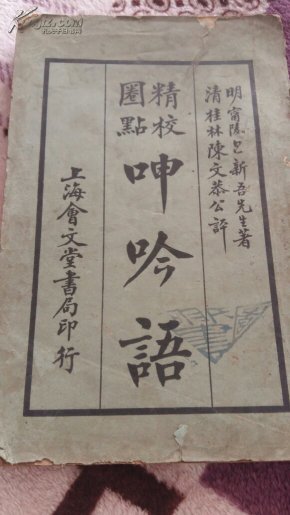 明甯陵呂新吾先生著
清桂林陳文恭公評
精校
圈點
呻吟語
上海會文堂書局印行